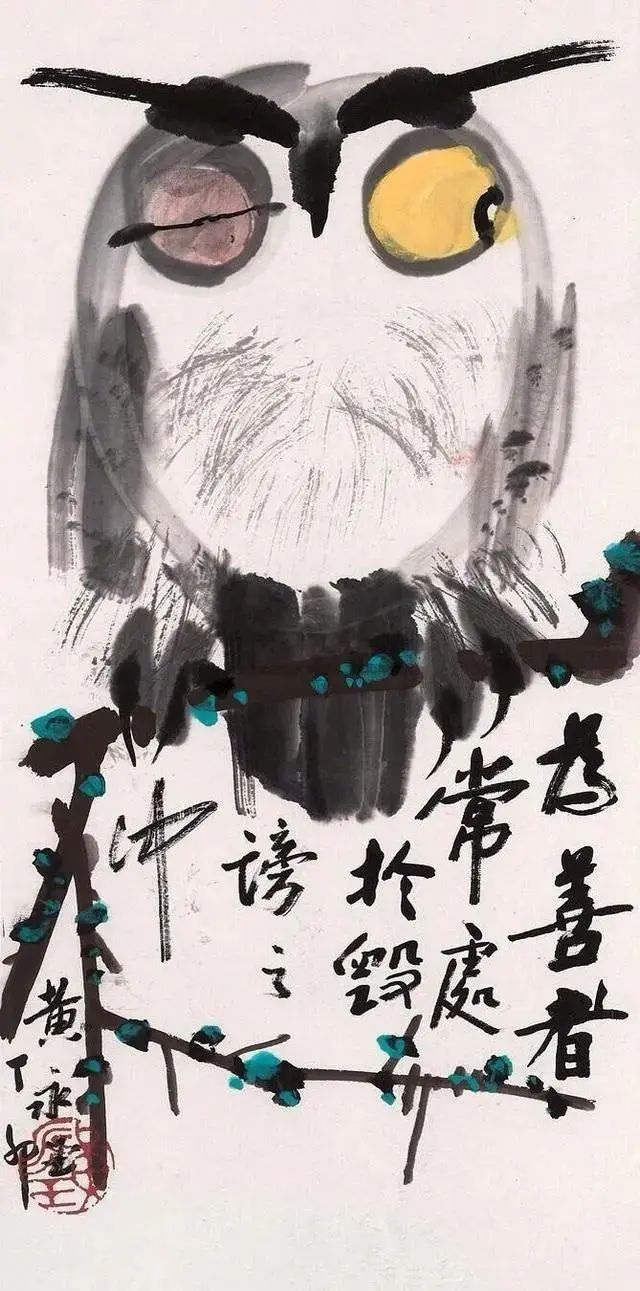 為善者
常處
於毀
謗之
中
黄永玉
丁卯